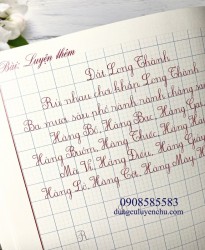 Bài: Luyện thêm
Đất Long Thành
Rủ nhau chơi khắp Long Thành
Ba mươi sáu phố rành rành chẳng sai
Hàng Bồ, Hàng Bạc, Hàng Gai,
Hàng Buồm, Hàng Thiếc, Hàng
Mã Vĩ, Hàng Điếu, Hàng Giày
Hàng Lờ, Hàng Cót, Hàng Mây, H
0908585583
dungculuyenchu.com
R